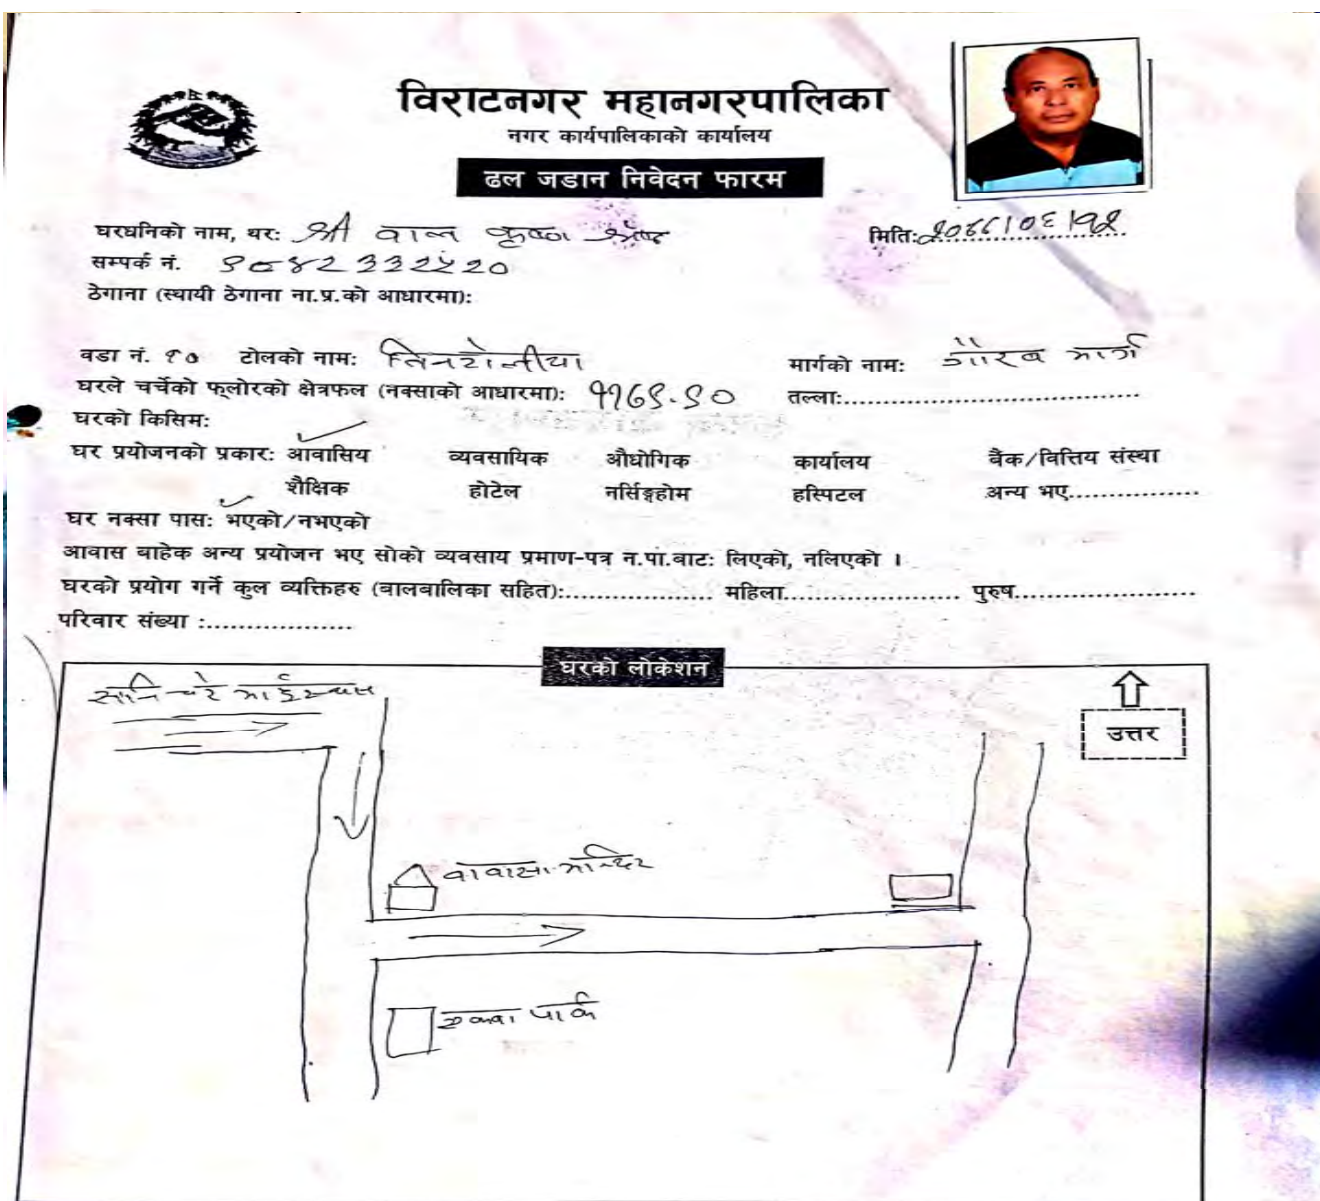 विराटनगर महानगरपालिका
नगर कार्यपालिकाको कार्यालय
ढल जडान निवेदन फारम
घरधनिको नाम, थर: श्री बाल कृष्ण श्रेष्ठ मिति:
सम्पर्क नं.
ठेगाना (स्थायी ठेगाना ना.प्र.को आधारमा):
वडा नं. १० टोलको नाम: तिनटोलीया मार्गको नाम: गौरव मार्ग
घरले चर्चेको फ्लोरको क्षेत्रफल (नक्साको आधारमा): ११६९.९० तल्ला:.....................................
घरको किसिम:
घर प्रयोजनको प्रकार: आवासिय व्यवसायिक औधोगिक कार्यालय बैंक/वित्तिय संस्था
शैक्षिक होटेल नर्सिङ्होम हस्पिटल अन्य भए................
घर नक्सा पास: भएको/नभएको
आवास बाहेक अन्य प्रयोजन भए सोको व्यवसाय प्रमाण-पत्र न.पा.बाट: लिएको, नलिएको ।
घरको प्रयोग गर्ने कुल व्यक्तिहरु (बालबालिका सहित):.................. महिला...................... पुरुष.......................
परिवार संख्या :..................
घरको लोकेशन
उत्तर
मन्दिर
पार्क